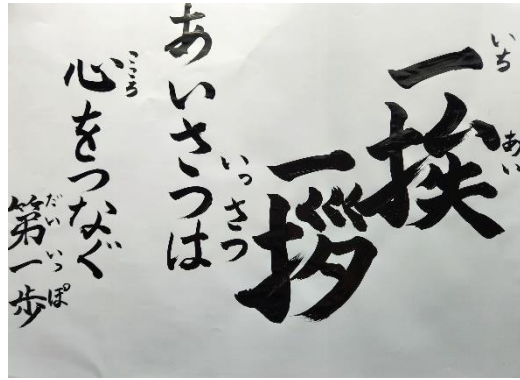 一挨
いちあい
一拶
いっさつ
あいさつは
心をつなぐ
こころ
第一歩
だいいっぽ